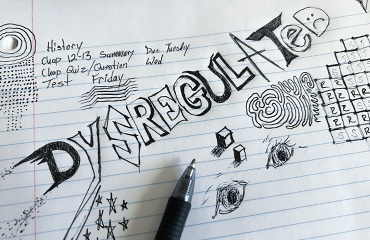 History
Chap 12-13 Summary Due Tuesday
Chap Quiz/Question Wed
Test Friday
DYSREGULATeD